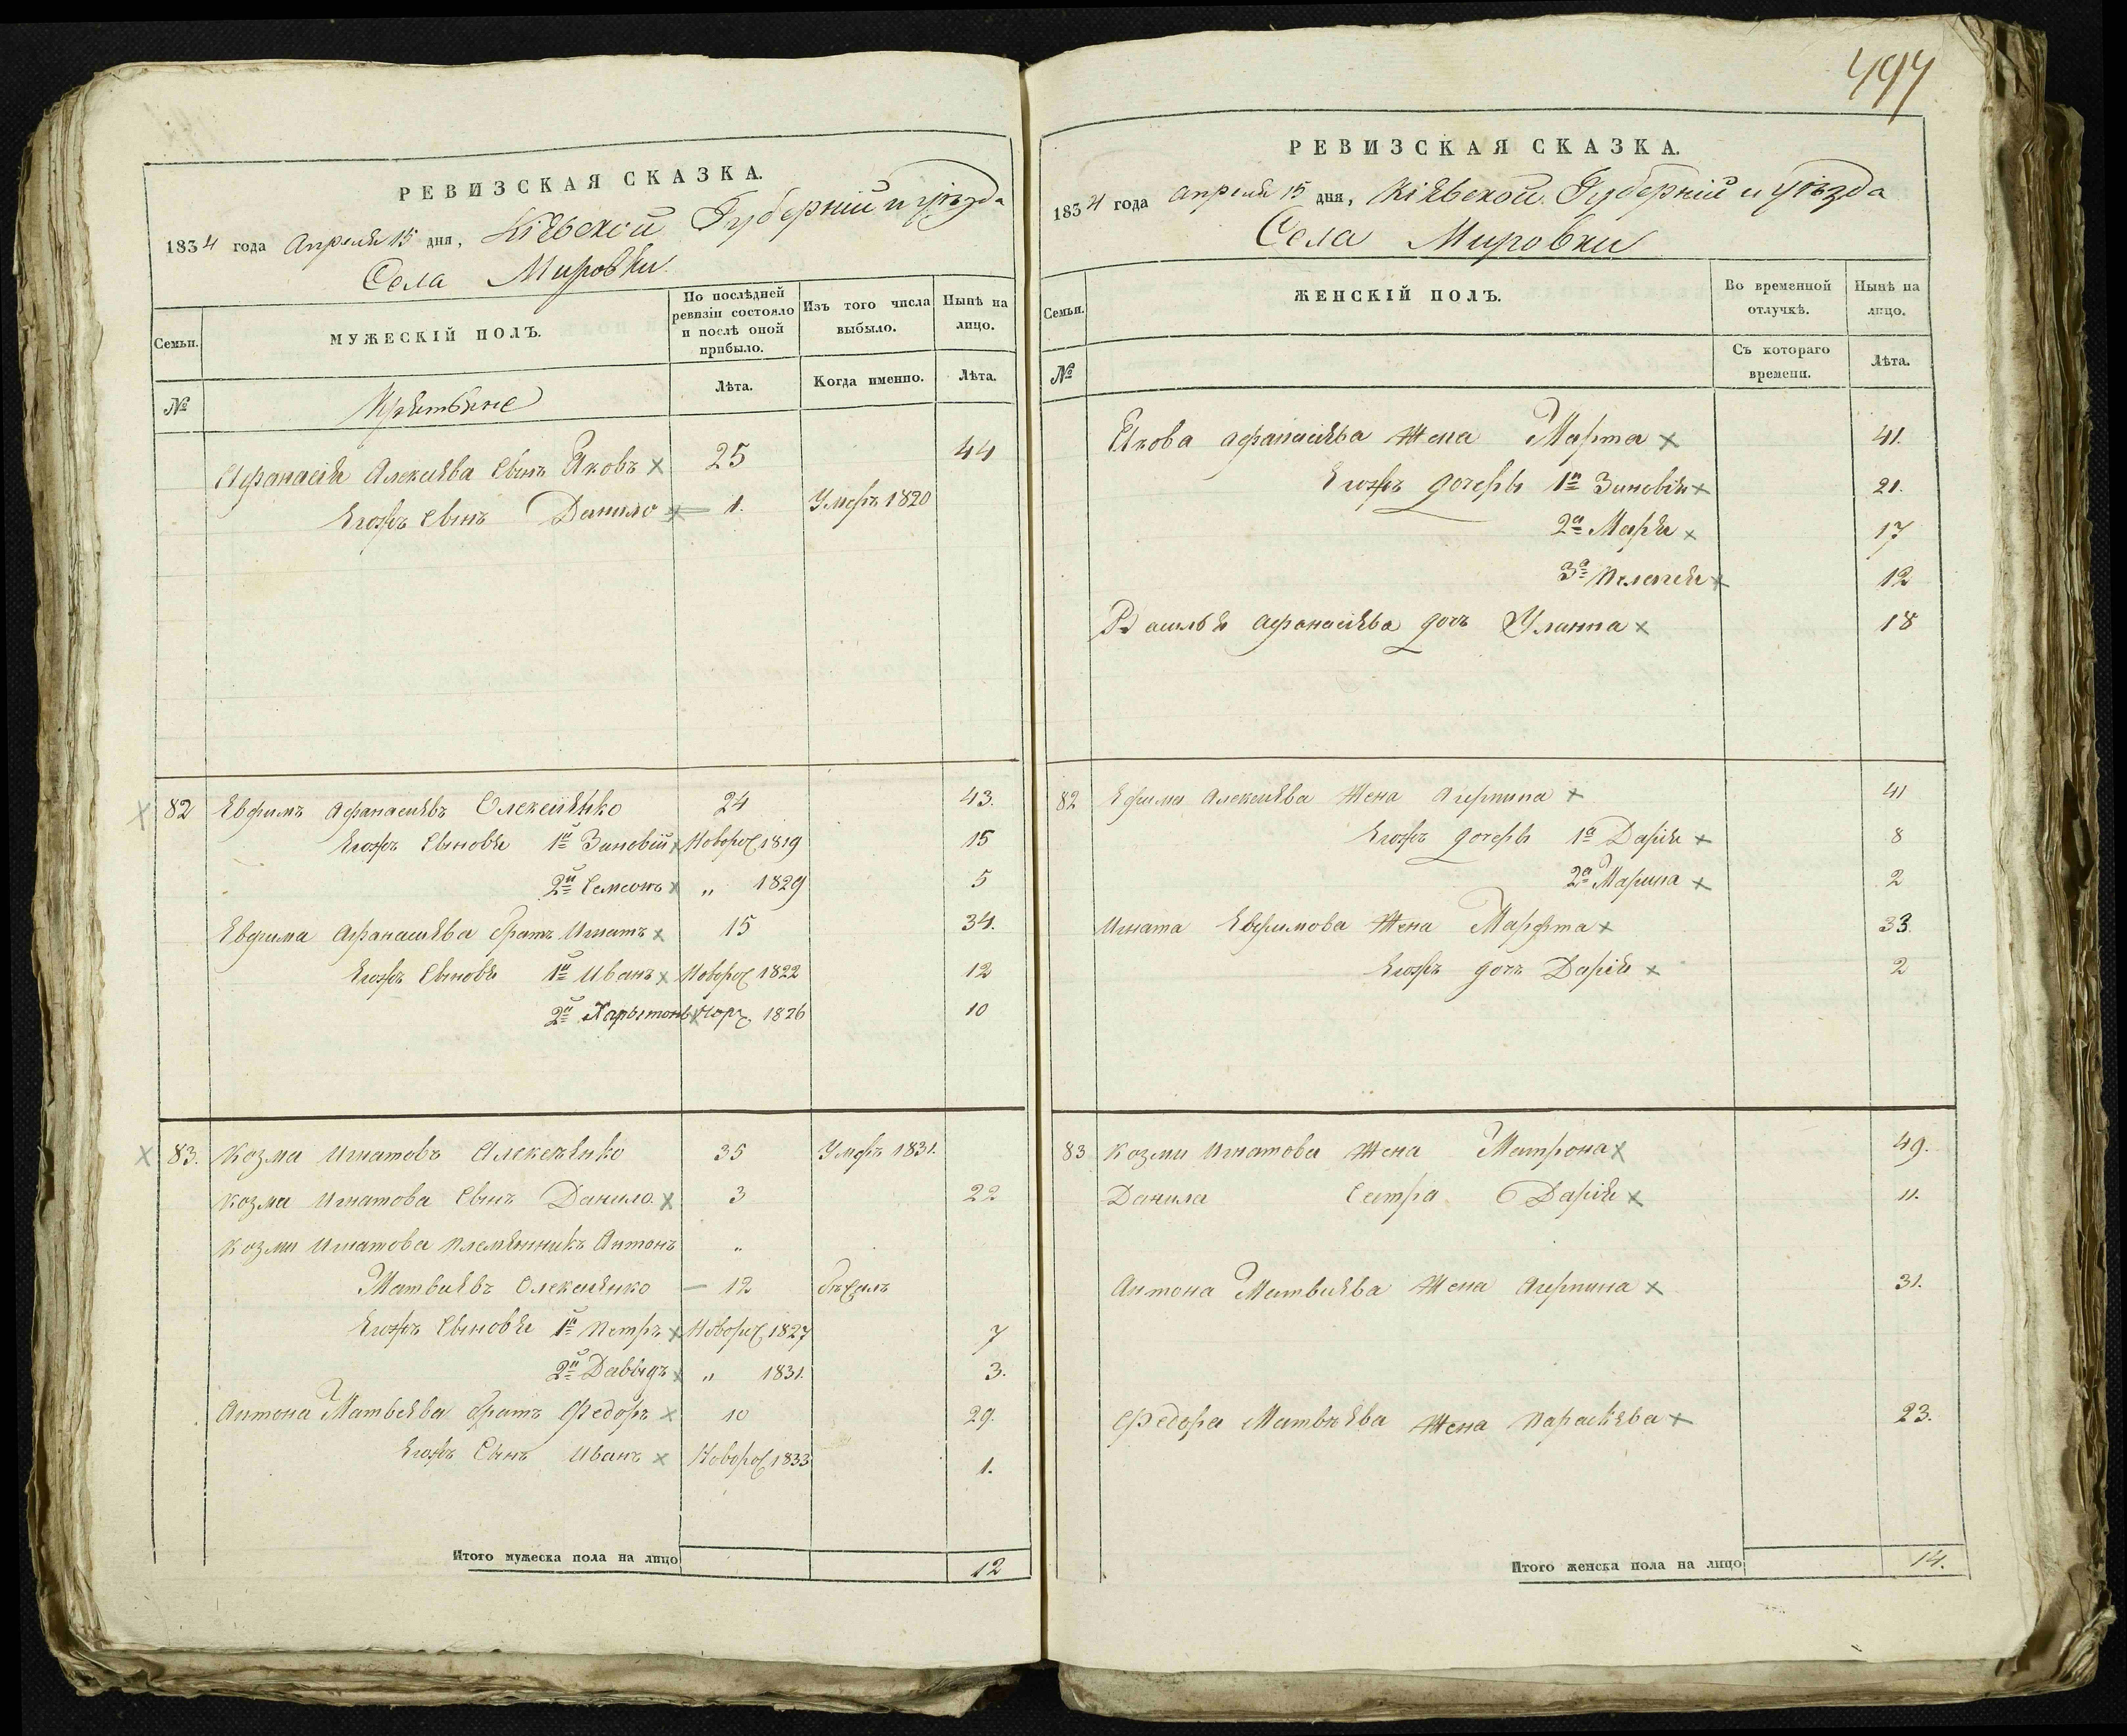 497
РЕВИЗСКАЯ СКАЗКА.
1834 года Апреля 15 дня, Кіевской Губерніи и уѣзда
Села Мировки
Семьи. МУЖЕСКІЙ ПОЛЪ. По послѣдней ревизіи состояло и послѣ оной прибыло. Изъ того числа выбыло. Нынѣ на лицо.
№ Лѣта. Когда именно. Лѣта.
Афанасія Алексіева Сынъ Яковъ 25 44
Егожъ Сынъ Данило 1. Умеръ 1820
82 Евфимъ Афанасіевъ Олексіенко 24 43.
Егожъ Сыновя 1й Зиновій Новорож 1819 15
2й Семенъ „ 1829 5
Евфима Афанасіева братъ Игнатъ 15 34.
Егожъ Сыновя 1й Иванъ Новорож 1822 12
2й Харытонъ 1826 10
83. Козма Игнатовъ Алексѣенко 35 Умеръ 1831.
Козма Игнатова Сынъ Данило. 3 22
Козми Игнатова племянникъ Антонъ „
Матвіевъ Олексіенко 12
Егожъ Сыновя 1й Петръ Новорож 1827 7
2й Давыдъ „ 1831. 3.
Антона Матвеева братъ Федоръ 10 29.
Егожъ Сынъ Иванъ Новорож 1833 1.
Итого мужеска пола на лицо 12
РЕВИЗСКАЯ СКАЗКА.
1834 года Апреля 15 дня, Кіевской Губерніи и уѣзда
Села Мировки
Семьи. ЖЕНСКІЙ ПОЛЪ. Во временной отлучкѣ. Нынѣ на лицо.
№ Съ котораго времени. Лѣта.
Якова Афанасіева Жена Марта 41.
Егожъ дочеры 1я Зиновія 21.
2я Маря 17
3я Пелагея 12
Василья Афанасіева дочъ Улянна 18
82 Ефима Алексіева Жена Агрипина 41
Егожъ дочеры 1а Дарія 8
2а Марина 2
Игната Евфимова Жена Марфта 33.
Егожъ дочъ Дарія 2
83 Козми Игнатова Жена Матрона 49.
Данила Сестра Дарія 11.
Антона Матвіева Жена Агрипина 31.
Федора Матвѣева Жена Параскева 23.
Итого женска пола на лицо 14.